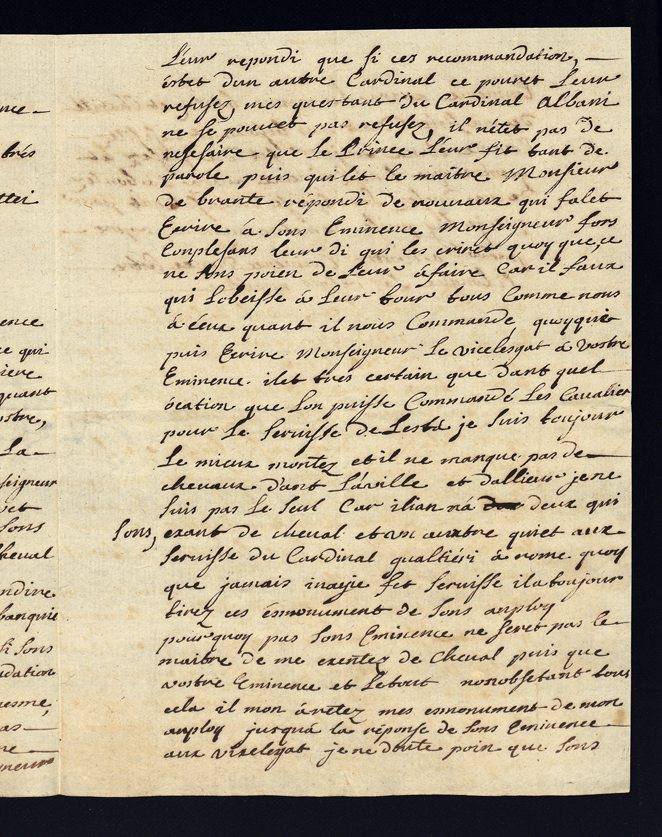 nce
brés
ttei
ence
ce qui
iere
quant
ostre,
La
seigneur
pet
Sons
cheval
ndire
banquie
si sons
ndation
uesme,
as
ne
gneurs
Leur repondi que si ces recommandation,
estet dun autre Cardinal ce pouret Leur
refusez mes questant du Cardinal Albani
ne se pouuet pas refusez, il netet pas de
nesesaire que Le Prince Leur fit tant de
parole puis quilet le maitre Monsieur
de brante répondi de nouuaux qui falet
Ecrire à Sons Eminence Monseigneur fors
Conplesans leur di qui les criret quoy que ce
ne sons poien de Leur àfaire Car il faux
qui Lobeisse à Leur tour tous Comme nous
à eeux quant il nous Commande quoyquil
puis Ecrire Monseigneur Le vicelesgat à vostre
Eminence. ilet tres certain que dant quel
ocation que Lon puisse Commandé Les Cavalier
pour Le Seruisse de Lesta je suis toujour
Le mieux montez et il ne manque pas de
chevaux dant Laville et dallieur je ne
suis pas Le seul Car ilian na deux qui
sons, exant de cheval et un auxtre qui et aux
Servisse du Cardinal qualtiéri à rome quoy
que jamais inaeje fet Seruisse ila toujour
tirez ces esmonument de Sons anploy
pourquoy pas Sons Eminence ne seret pas le
maitre de me exentez de Cheval puis que
vostre Eminence et Letout nonobsetant tous
cela il mon àretez mes esmonument de mon
anploy jusqua la réponse de Sons Eminence
aux vixelegat je ne doute poin que Sons